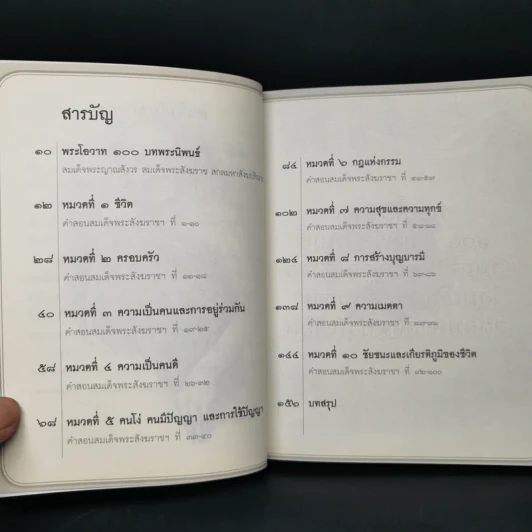 สารบัญ
๑๐ พระโอวาท ๑๐๐ บทพระนิพนธ์
สมเด็จพระญาณสังวร สมเด็จพระสังฆราช สกลมหาสังฆปริณายก
๑๒ หมวดที่ ๑ ชีวิต
คำสอนสมเด็จพระสังฆราชฯ ที่ ๑-๑๐
๒๘ หมวดที่ ๒ ครอบครัว
คำสอนสมเด็จพระสังฆราชฯ ที่ ๑๑-๑๘
๔๐ หมวดที่ ๓ ความเป็นคนและการอยู่ร่วมกัน
คำสอนสมเด็จพระสังฆราชฯ ที่ ๑๙-๒๕
๕๘ หมวดที่ ๔ ความเป็นคนดี
คำสอนสมเด็จพระสังฆราชฯ ที่ ๒๖-๓๒
๖๘ หมวดที่ ๕ คนโง่ คนมีปัญญา และการใช้ปัญญา
คำสอนสมเด็จพระสังฆราชฯ ที่ ๓๓-๔๐
๘๔ หมวดที่ ๖ กฎแห่งกรรม
คำสอนสมเด็จพระสังฆราชฯ ที่
๑๐๒ หมวดที่ ๗ ความสุขและความทุกข์
คำสอนสมเด็จพระสังฆราชฯ ที่
๑๒๔ หมวดที่ ๘ การสร้างบุญบารมี
คำสอนสมเด็จพระสังฆราชฯ ที่ ๖๙-๘๖
๑๓๘ หมวดที่ ๙ ความเมตตา
คำสอนสมเด็จพระสังฆราชฯ ที่ ๘๗-๙๑
๑๔๔ หมวดที่ ๑๐ ชัยชนะและเกียรติภูมิของชีวิต
คำสอนสมเด็จพระสังฆราชฯ ที่ ๙๒-๑๐๐
๑๕๖ บทสรุป